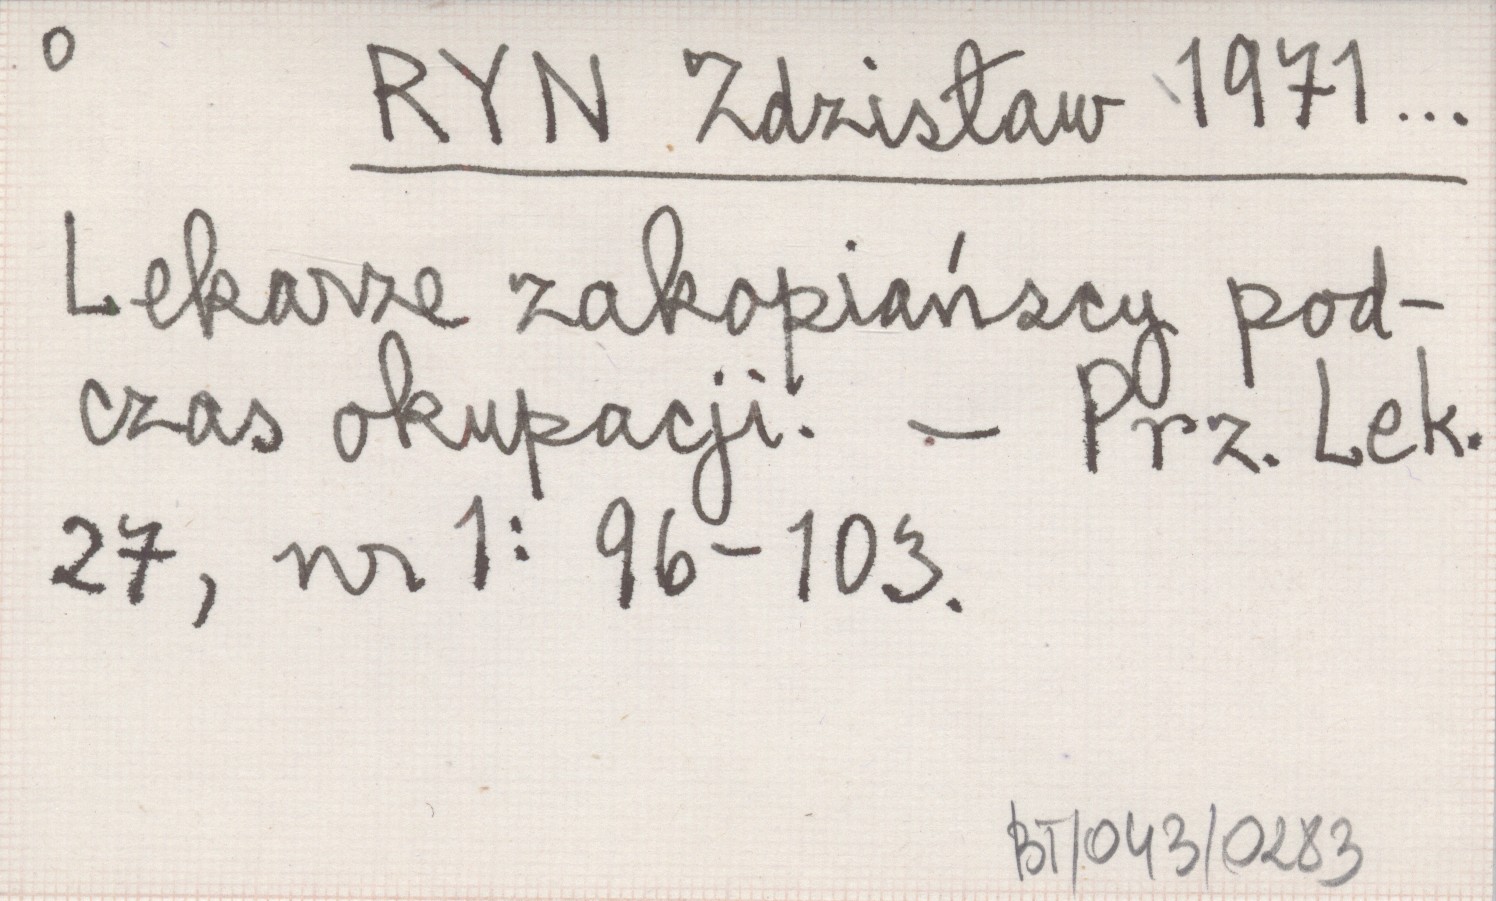 o RYN Zdzisław 1971...
Lekarze zakopiańscy pod-
czas okupacji. — Prz. Lek.
27, nr 1: 96-103.
BT/043/0283